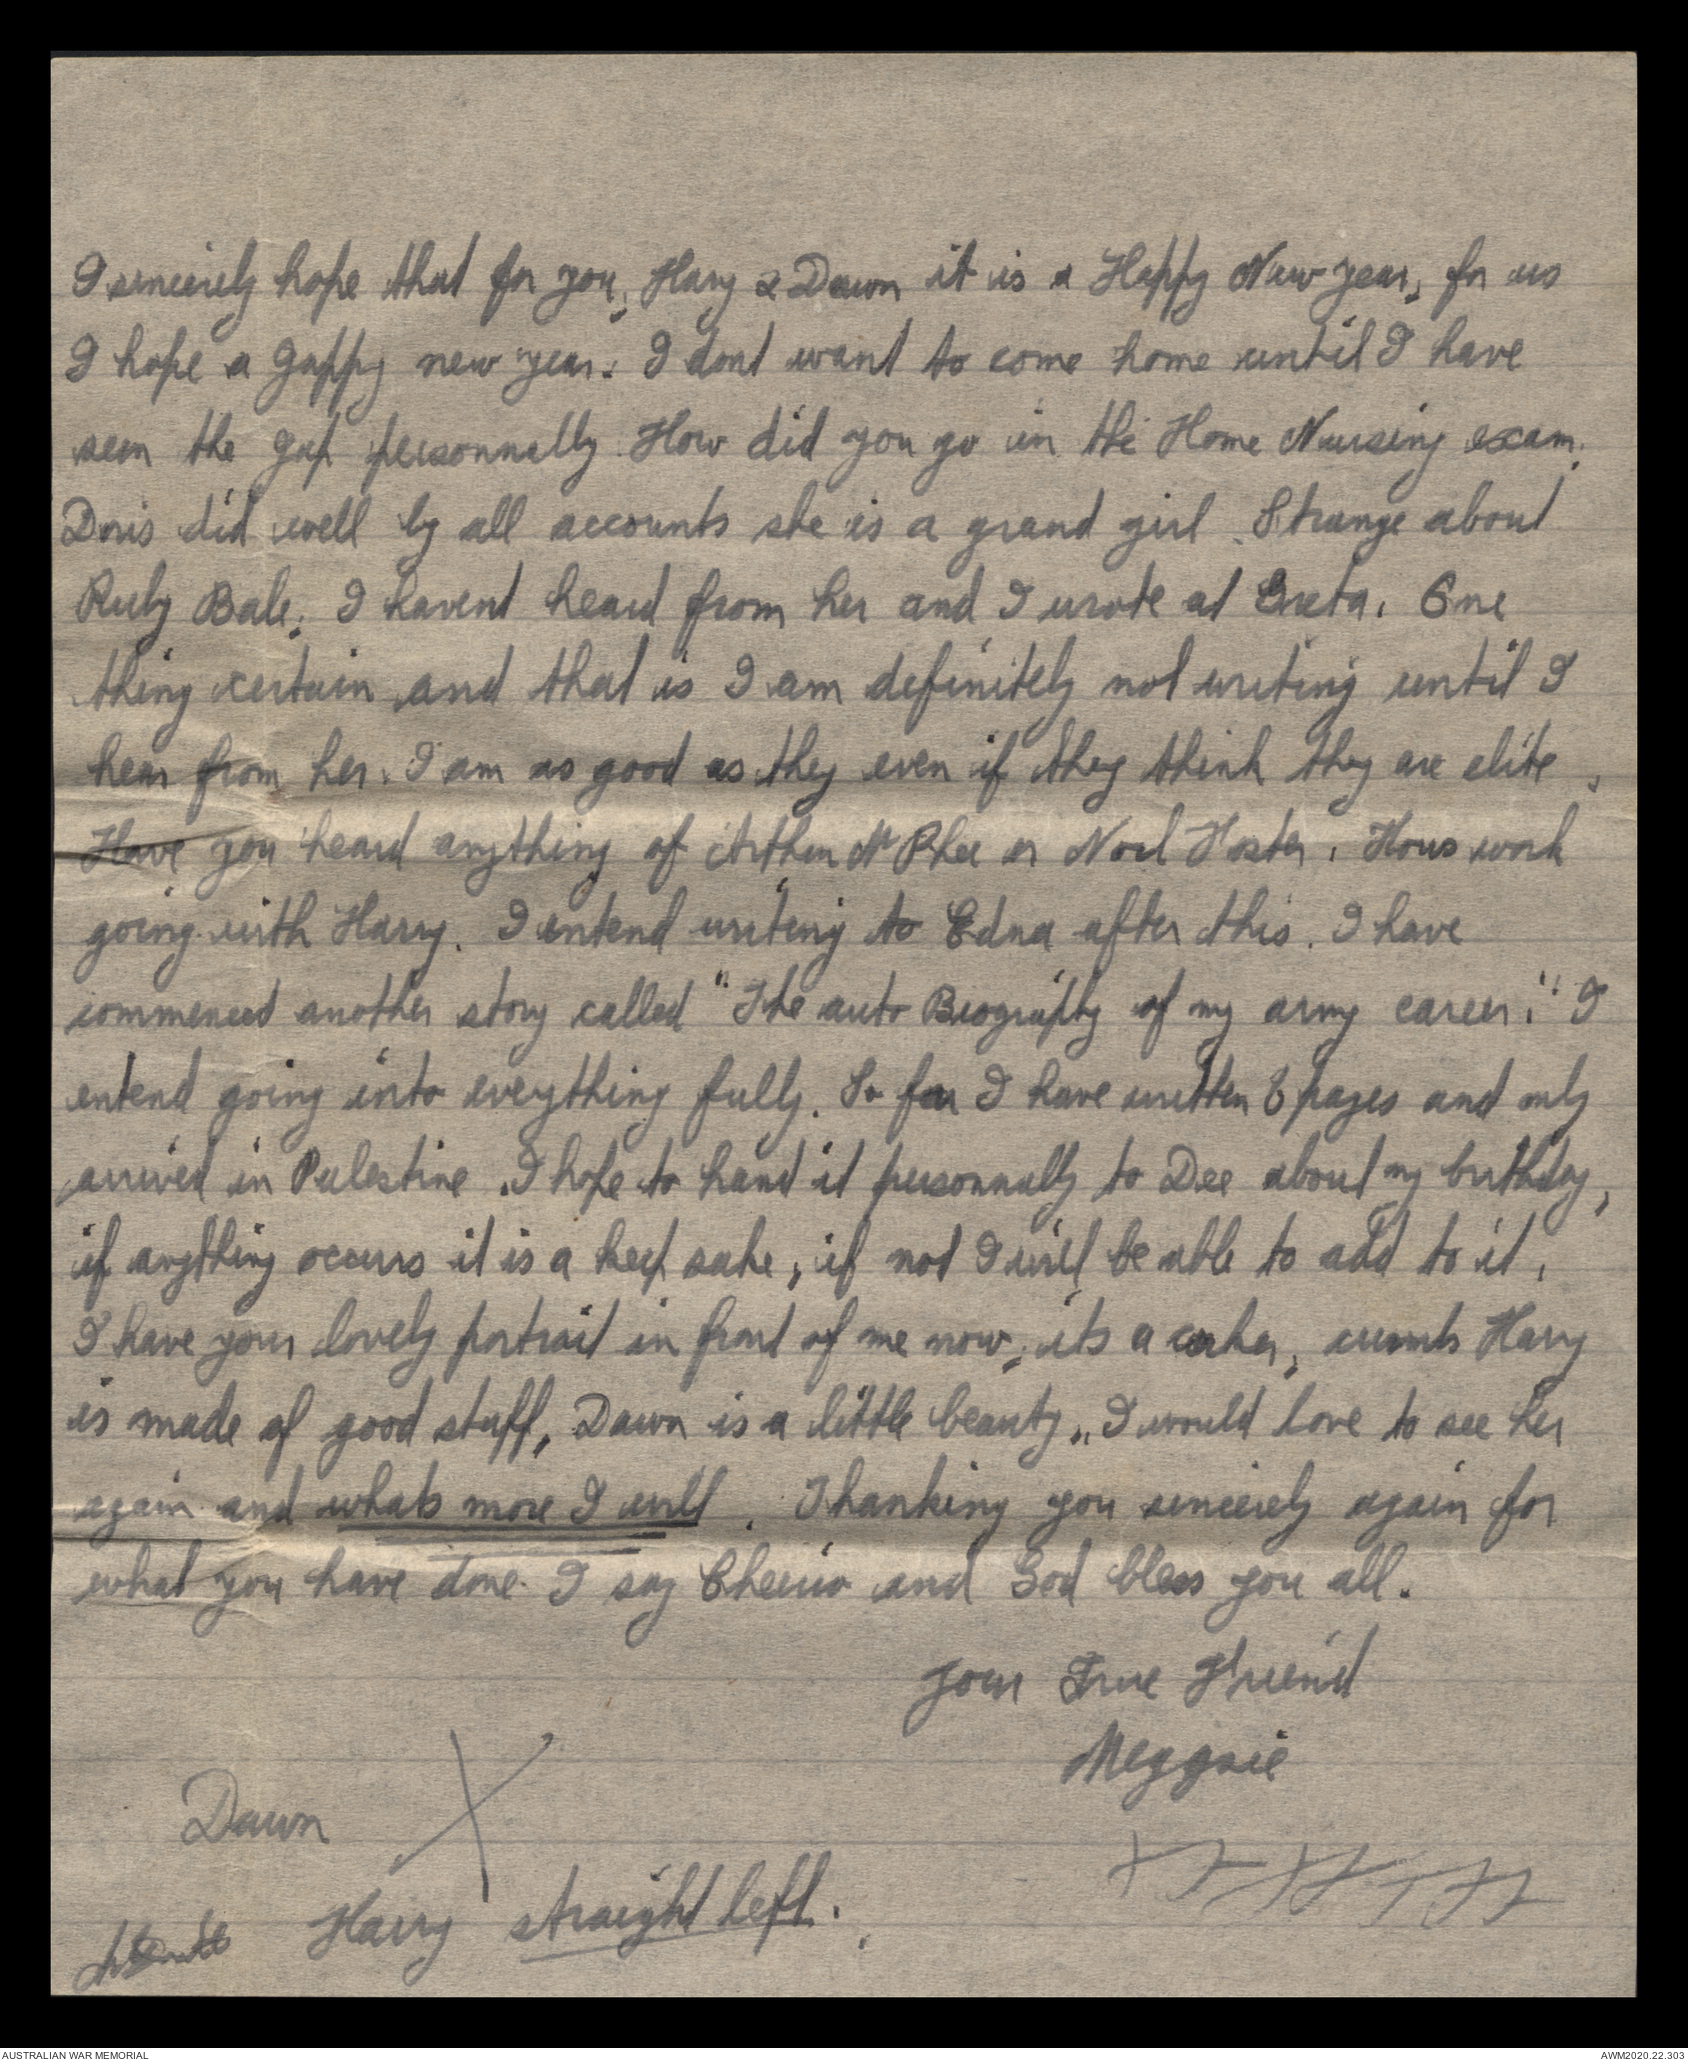 I sincerely hope that for you, Harry & Dawn it is a Happy New year, for us
I hope a Jappy new year. I dont want to come home until I have
seen the Jap personnally. How did you go in the Home Nursing exam.
Doris did well by all accounts she is a grand girl. Strange about
Ruby Bale, I havent heard from her and I wrote at Greta. One
thing certain and that is I am definitely not writing until I
hear from her. I am as good as they even if they think they are elite.
Have you heard anything of Arthur McPhee or Noel Foster. Hows work
going with Harry. I entend writing to Edna after this. I have
commenced another story called "The auto Biography of my army career." I
entend going into everything fully. So far I have written 6 pages and only
arrived in Palestine. I hope to hand it personnally to Dee about my birthday,
if anything occurs it is a keep sake, if not I will be able to add to it.
I have your lovely portrait in front of me now, its a corker, crumbs Harry
is made of good stuff, Dawn is a little beauty, I would love to see her
again and whats more I will. Thanking you sincerely again for
what you have done. I say Cheerio and God bless you all.
Your True Friend
Meggsie
Dawn X
Harry straight left.
AUSTRALIAN WAR MEMORIAL
AWM2020.22.303